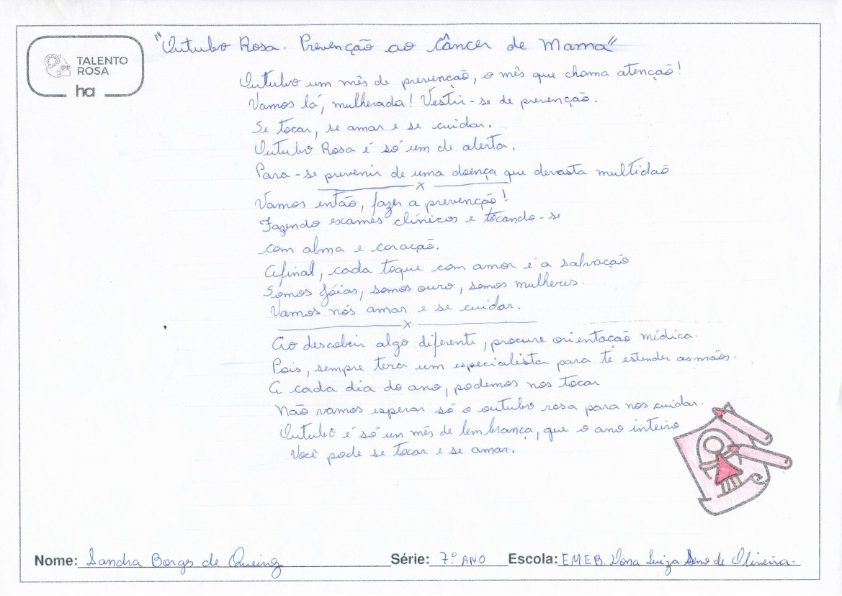 "Outubro Rosa. Prevenção ao Câncer de Mama"
TALENTO
ROSA
ha
Outubro um mês de prevenção, o mês que chama atenção!
Vamos lá, mulherada! Vestir-se de prevenção.
Se tocar, se amar e se cuidar.
Outubro Rosa é só um de alerta.
Para-se prevenir de uma doença que devasta multidão
x
Vamos então, fazer a prevenção!
Fazendo exames clínicos e tocando-se
com alma e coração.
Afinal, cada toque com amor é a salvação
Somos jóias, somos ouro, somos mulheres
Vamos nós amar e se cuidar.
x
Ao descobrir algo diferente, procure orientação médica.
Pois, sempre terá um especialista para te estender as mãos.
A cada dia do ano, podemos nos tocar
Não vamos esperar só o outubro rosa para nos cuidar.
Outubro é só um mês de lembrança, que o ano inteiro
Você pode se tocar e se amar.
Nome: Sandra Borges de Série: 7º ANO Escola: EMEB. Dona Luiza de Oliveira.